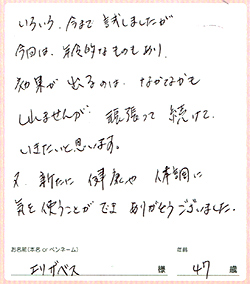 いろいろ、今まで試しましたが
今回は、年令的なものもあり、
効果が出るのは、なかなかで
しれませんが、頑張って続けて
いきたいと思います。
又、新たに健康や体調に
気を使うことができ ありがとうございました。
お名前(本名 or ペンネーム) 年齢
エリザベス 様 47 歳